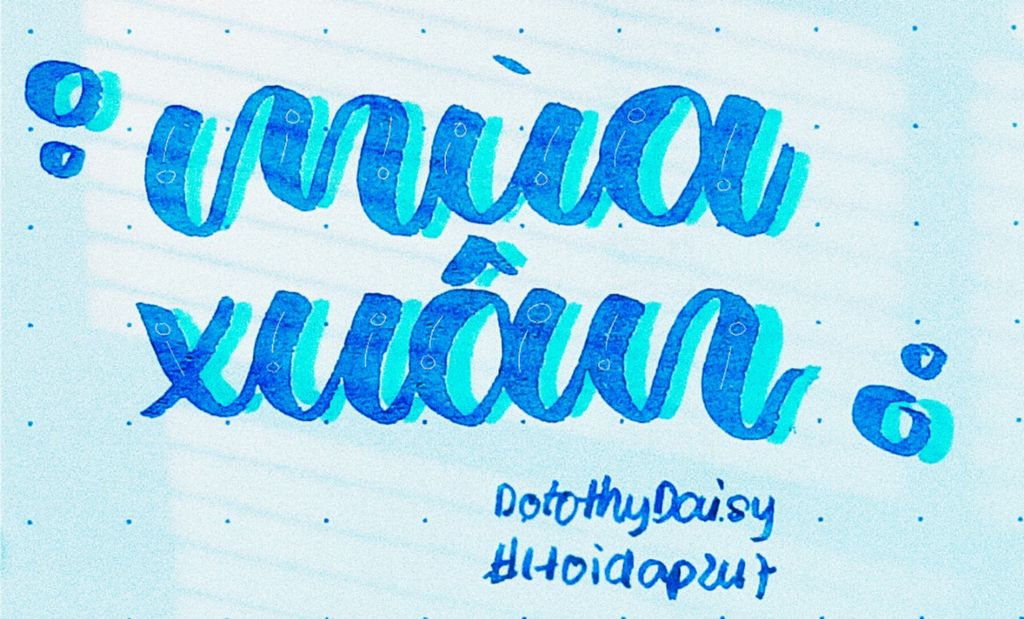 mùa
xuân
DotothyDaisy
#Hoidap247